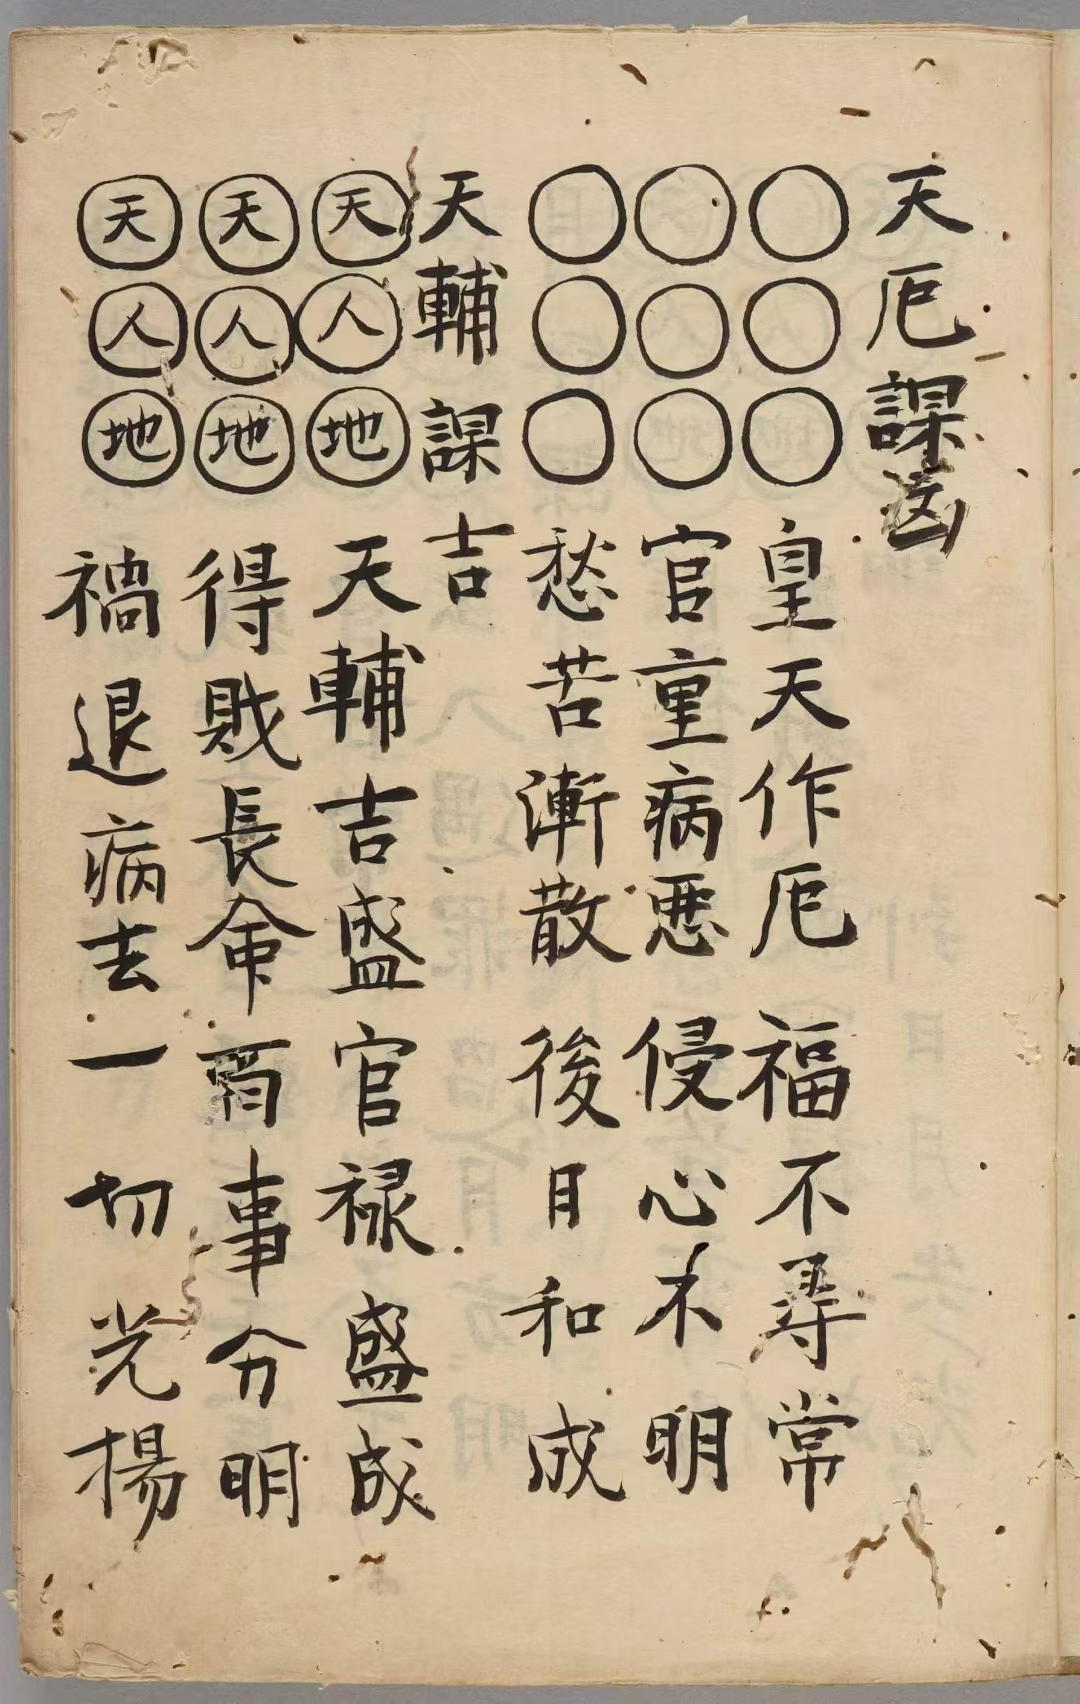 天厄課凶
○○○皇天作厄福不尋常
○○○官重病悪侵心不明
○○○愁苦漸散後日和成
天輔課吉
天人地天輔吉盛官禄盛成
天人地得財長命商事分明
天人地禍退病去一切光揚